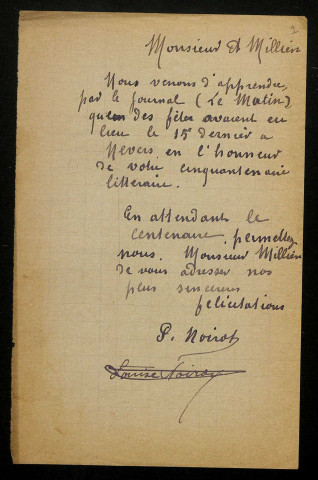 2
Monsieur Et Millien
Nous venons d'apprendre,
par le journal (Le Matin)
que des fêtes avaient eu
lieu le 15e dernier a
Nevers en l'honneur
de votre cinquantenaire
litteraire.
En attendant le
centenaire, permettez
nous. Monsieur Millien
de vous adresser nos
plus sinceres
felicitations
P. Noirot
Louise Noirot